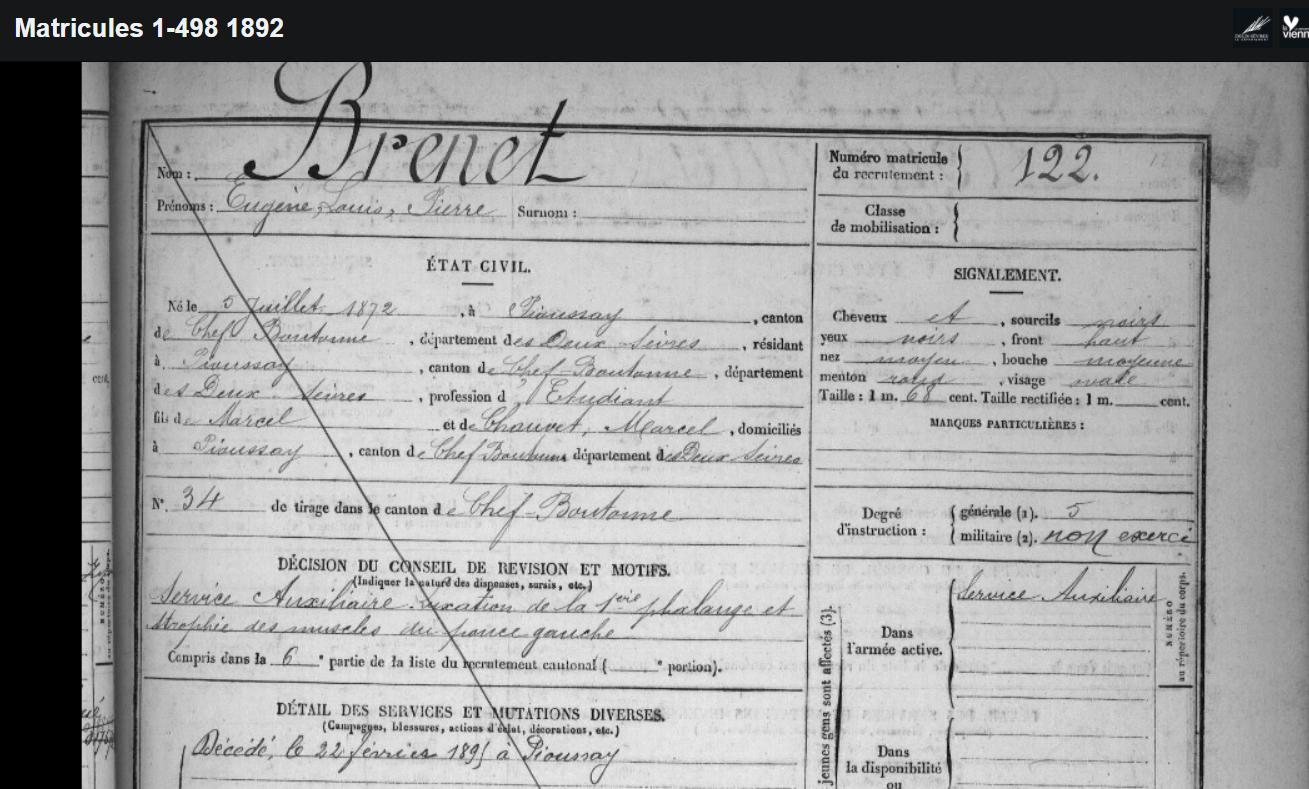 Matricules 1-498 1892
Brenet
Nom :
Prénoms : Eugène, Louis, Pierre Surnom :
Numéro matricule
du recrutement : 122.
Classe
de mobilisation :
ÉTAT CIVIL.
Né le 5 Juillet 1872, à Pioussay, canton
de Chef Boutonne, département des Deux Sèvres, résidant
à Pioussay, canton de Chef-Boutonne, département
des Deux Sèvres, profession d' Etudiant
fils de Marcel et de Chauvet, Marcel, domiciliés
à Pioussay, canton de Chef Boutonne département des Deux Sèvres
N° 34 de tirage dans le canton de Chef-Boutonne
SIGNALEMENT.
Cheveux et, sourcils noirs
yeux noirs, front haut
nez moyen, bouche moyenne
menton rond, visage ovale
Taille : 1 m. 68 cent. Taille rectifiée : 1 m. cent.
MARQUES PARTICULIÈRES :
Degré
d'instruction :
générale (1). 5
militaire (2). non exercé
DÉCISION DU CONSEIL DE REVISION ET MOTIFS.
(Indiquer la nature des dispenses, sursis, etc.)
Service Auxiliaire. luxation de la 1ère phalange et
atrophie des muscles du pouce gauche
Compris dans la 6e partie de la liste du recrutement cantonal ( e portion).
DÉTAIL DES SERVICES ET MUTATIONS DIVERSES.
(Campagnes, blessures, actions d'éclat, décorations, etc.)
Décédé, le 22 février 1895 à Pioussay
jeunes gens sont affectés (3).
Dans
l'armée active.
Service Auxiliaire
NUMÉRO
au répertoire du corps.
Dans
la disponibilité
ou